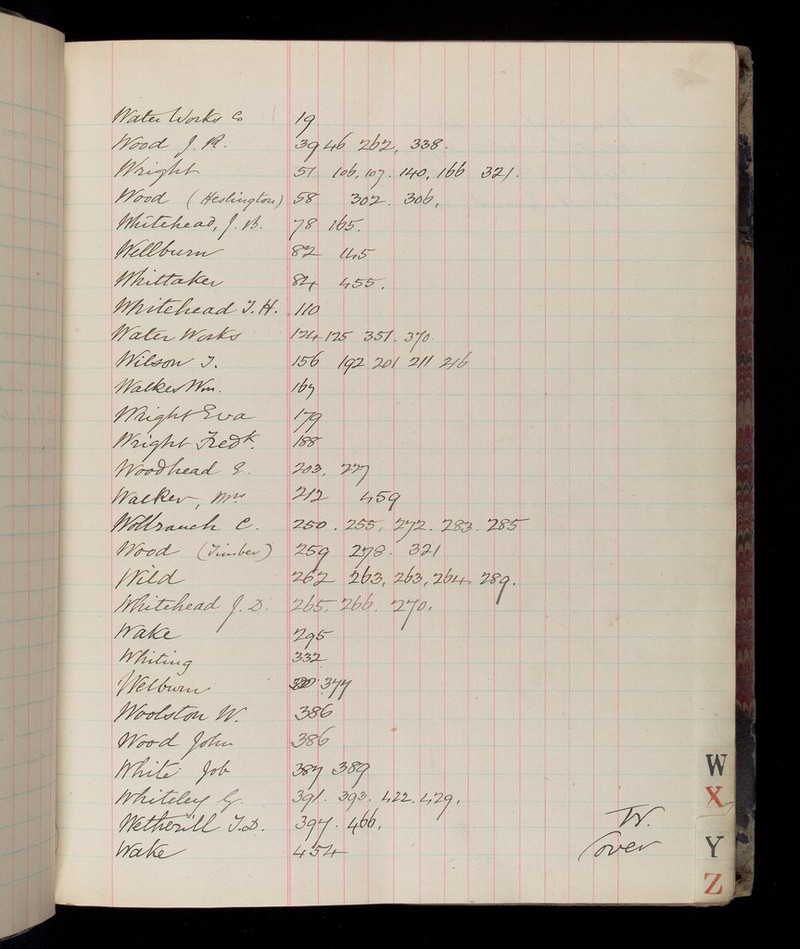 Water Works Co 19
Wood J. R. 39 46 262, 338.
Wright 51 106. 107. 140. 166 321.
Wood (Heslington) 58 302. 306.
Whitehead, J. B. 78 165.
Wellburn 82 145
Whittaker 84 455.
Whitehead T. H. 110
Water Works 124 125 351. 370.
Wilson T. 156 192 201 211 216
Walker Wm. 167
Wright Eva 179
Wright Fredk. 188
Woodhead E. 203. 227
Walker, Mrs 212 459
Wollrauch C. 250. 255. 272. 283. 285
Wood (Timber) 259 278. 321
Wild 262 263, 263, 264. 289.
Whitehead J. D. 265. 266. 270.
Wake 295
Whiting 332
Welburn 377
Woolston W. 386
Wood John 386
White Job 387 389
Whiteley G. 391. 393. 422. 429.
Wetherill T. D. 397. 466.
Wake 454
W.
over
W
X
Y
Z